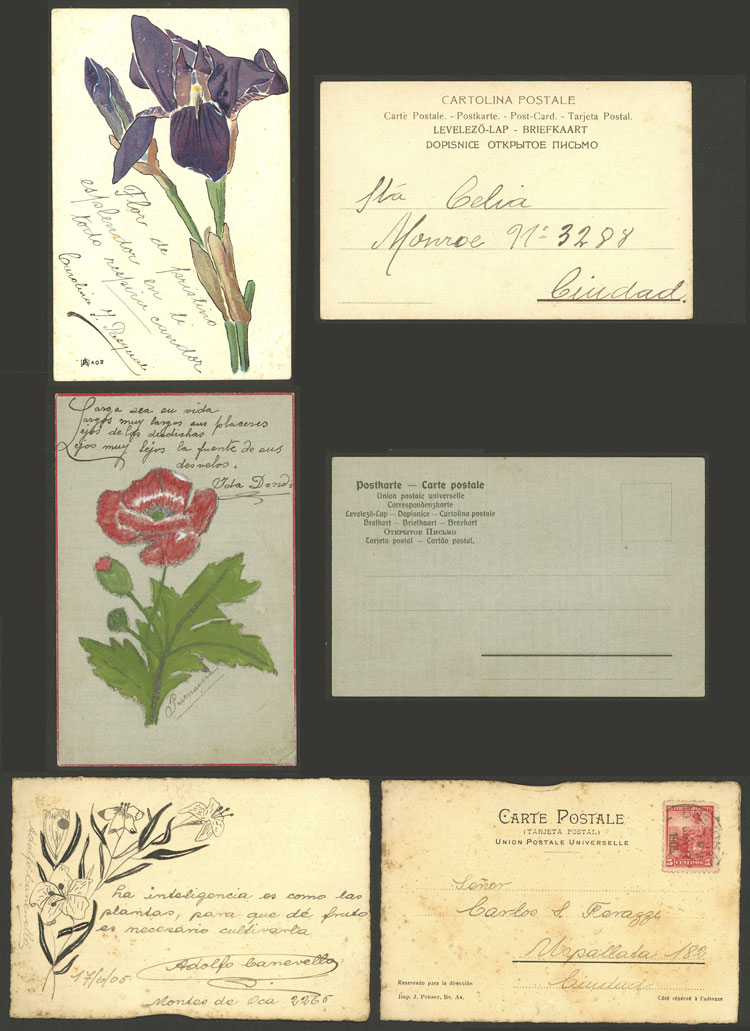 Flor de pristino
esplendor en ti
todo respira candor
Carolina J. Pasquale
402
CARTOLINA POSTALE
Carte Postale. - Postkarte. - Post-Card. - Tarjeta Postal.
LEVELEZŐ-LAP - BRIEFKAART
DOPISNICE ОТКРЫТОЕ ПИСЬМО
Sta Celia
Monroe Nº 3288
Ciudad.
Larga sea su vida
largos muy largos sus placeres
lejos de los desdichas
Lejos muy lejos la fuente de sus
desvelos.
Ida Dondi
Primavera
Postkarte — Carte postale
Union postale universelle
Correspondenzkarte
Levelező-Lap — Dopisnice — Cartolina postale
Brefkort — Briefkaart — Brevkort
Открытое Письмо
Tarjeta postal — Cartão postal.
La inteligencia es como las
plantas, para que dé fruto
es necesario cultivarla
Adolfo Canevello
17/6/05
Montes de Oca 2265
CARTE POSTALE
(TARJETA POSTAL)
UNION POSTALE UNIVERSELLE
5 CENTAVOS 5
Señor
Carlos S. Ferazzi
Uspallata 182
Ciudad
Reservado para la dirección
Côté réservé à l'adresse
Imp. J. Peuser, Bs. As.